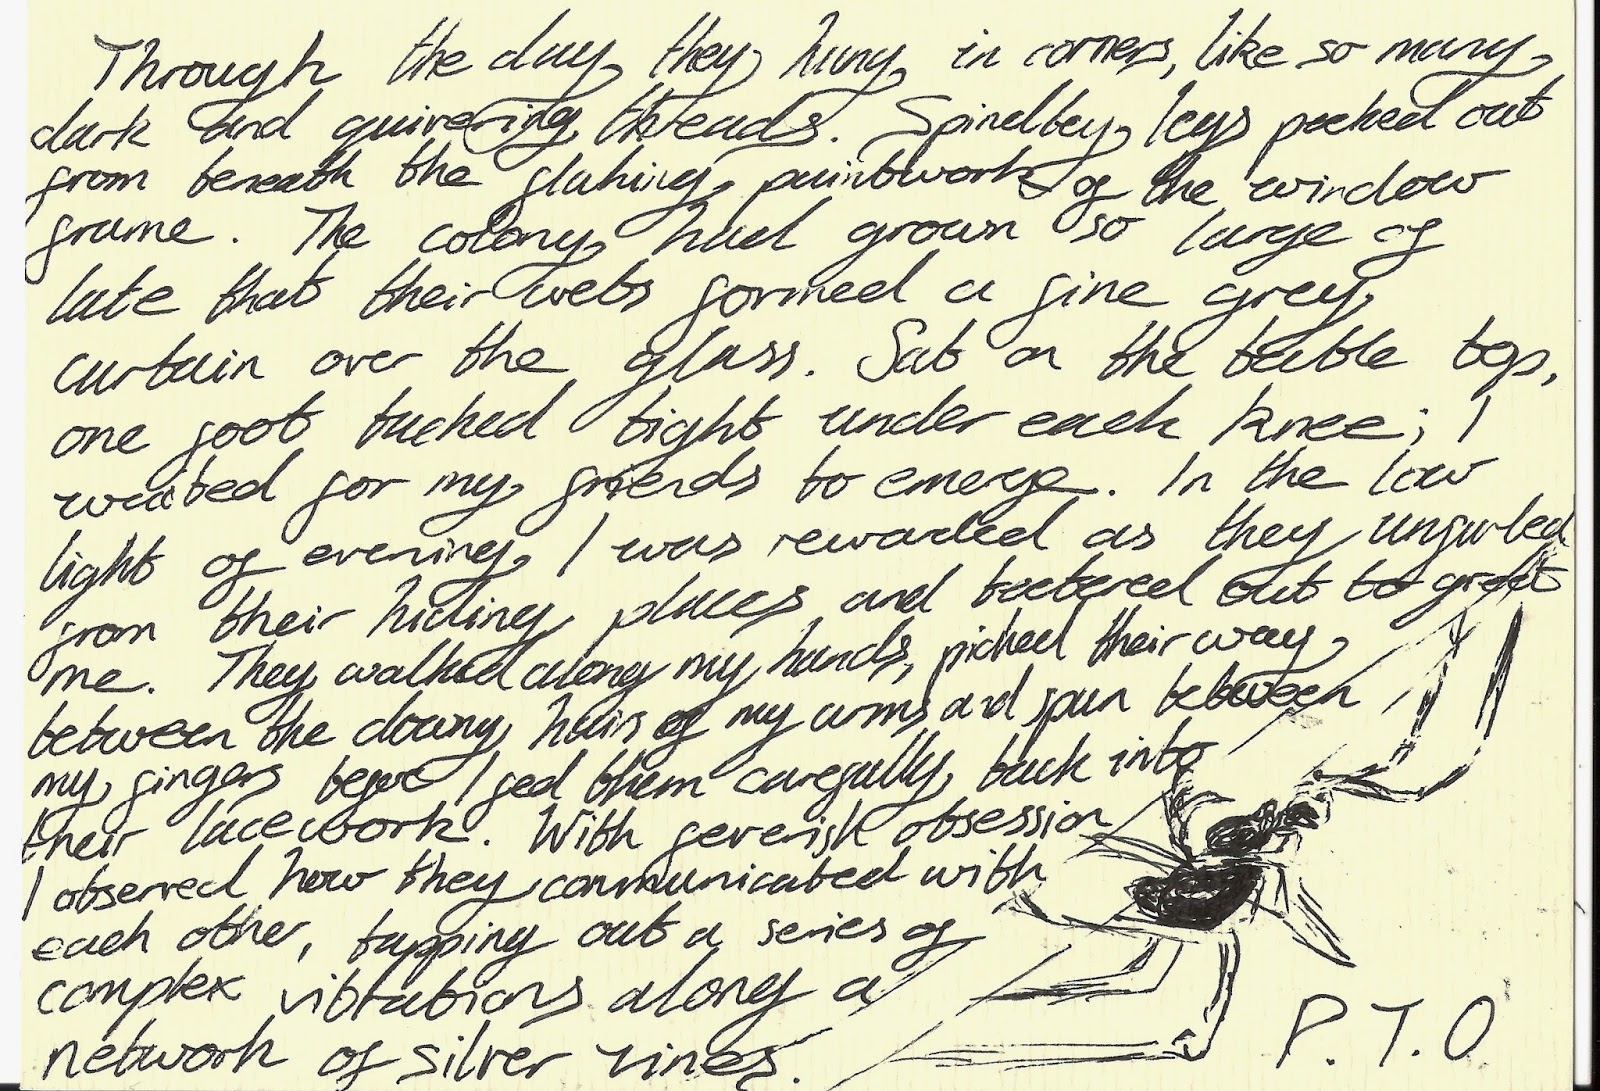 Through the day they hung in corners, like so many
dark and quivering threads. Spindley legs peeked out
from beneath the flaking paintwork of the window
frame. The colony had grown so large of
late that their webs formed a fine grey
curtain over the glass. Sat on the table top,
one foot tucked tight under each knee; I
waited for my friends to emerge. In the low
light of evening I was rewarded as they unfurled
from their hiding places and teetered out to greet
me. They walked along my hands, picked their way
between the downy hairs of my arms and spun between
my fingers before I fed them carefully back into
their lacework. With feverish obsession
I observed how they communicated with
each other, tapping out a series of
complex vibrations along a
network of silver lines.
P.T.O